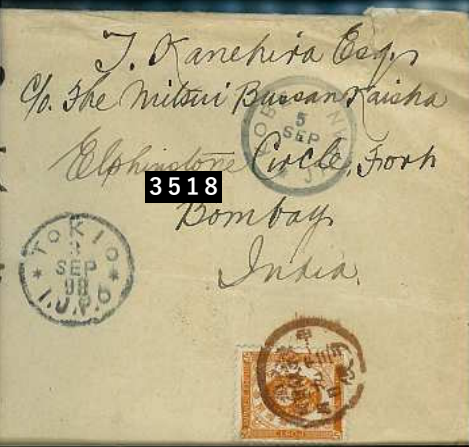 T. Kanehira Esq.
c/o. The Mitsui Bussan Kaisha
Elphinstone Circle, Fort
3518
Bombay
India.
5
SEP
TOKIO
3
SEP
98
I.J.P.O